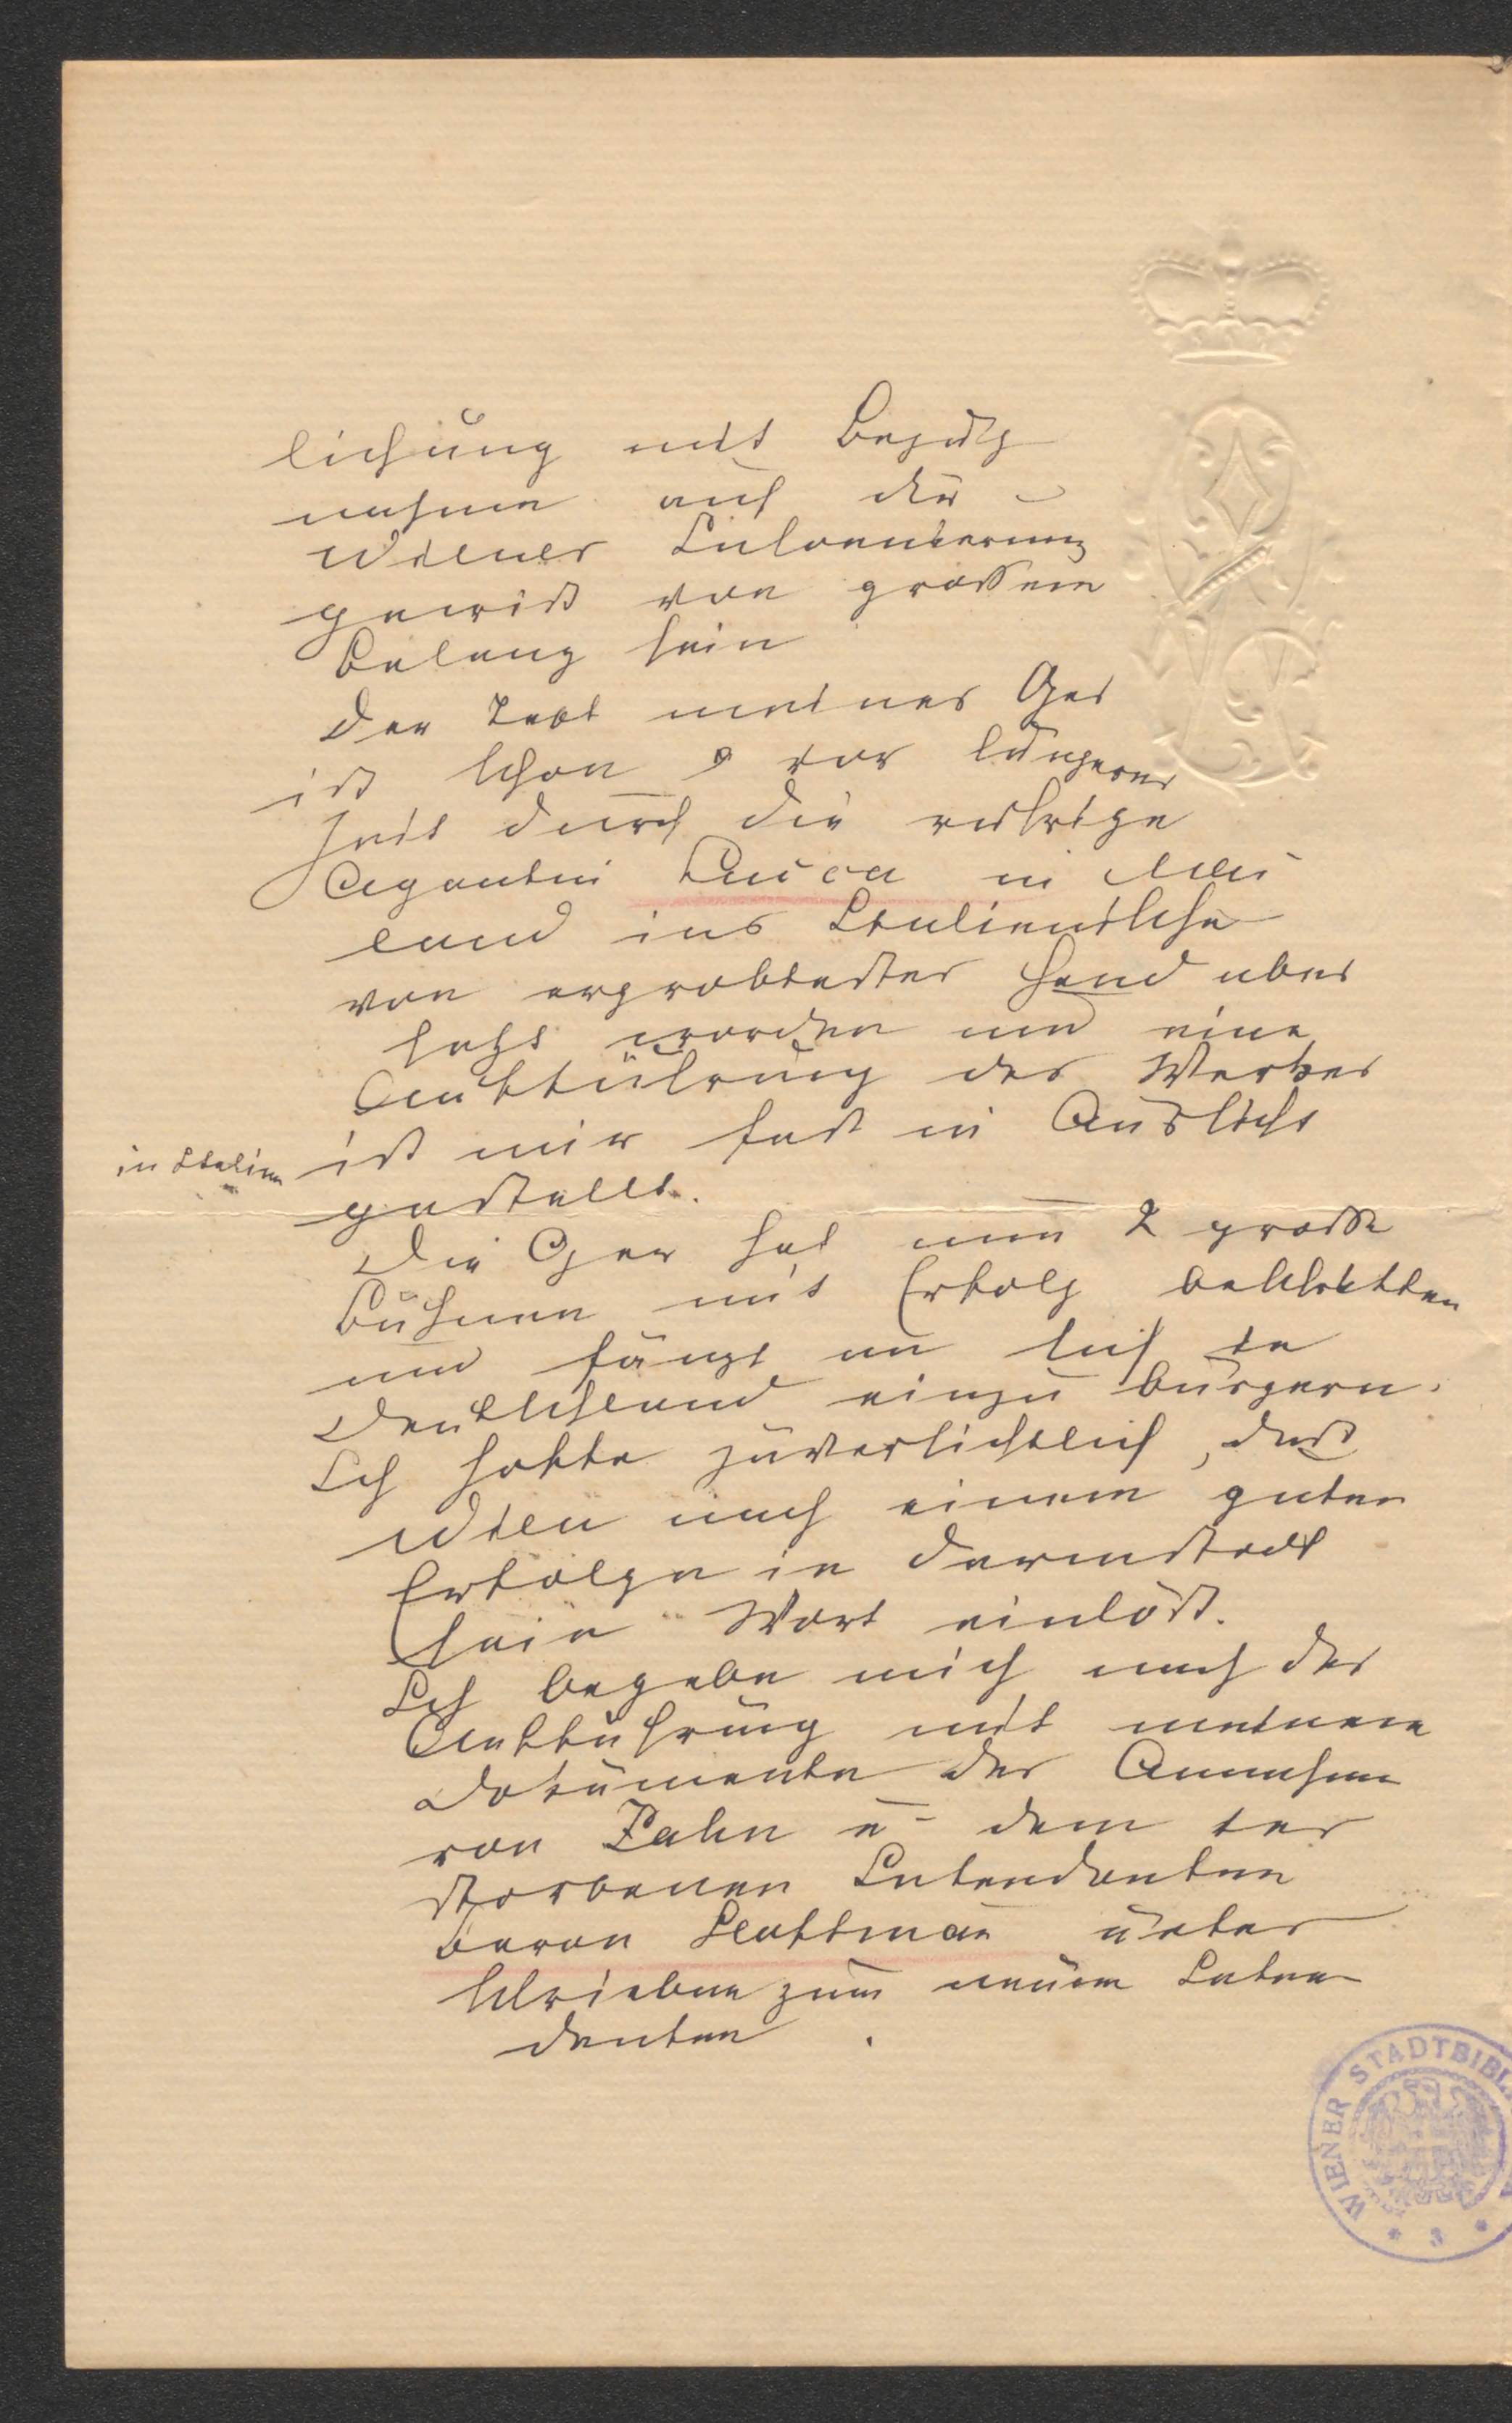 lichung mit Bezug
nahme auf die
Wiener Inscenierung
gewiß von großem
Belang sein
Der Text meiner Oper
ist schon vor längerer
Zeit durch die rührige
Agentin Lucca in Mai
land ins Italienische
von erprobtester Hand über
setzt worden und eine
Aufführung des Werkes
in Italien
ist mir fest in Aussicht
gestellt.
Die Oper hat nun 2 große
Bühnen mit Erfolg beschritten
und fängt an sich in
Deutschland einzu bürgern.
Ich hoffe zuversichtlich, daß
Wien nach einem guten
Erfolge in Darmstadt
sein Wort einlöst.
Ich begebe mich nach der
Aufführung mit meinem
Dokumente der Annahme
von Jahn u dem ver
storbenen Intendanten
Baron Hoffmann unter
schrieben zum neuen Inten
danten.
WIENER STADTBIBL